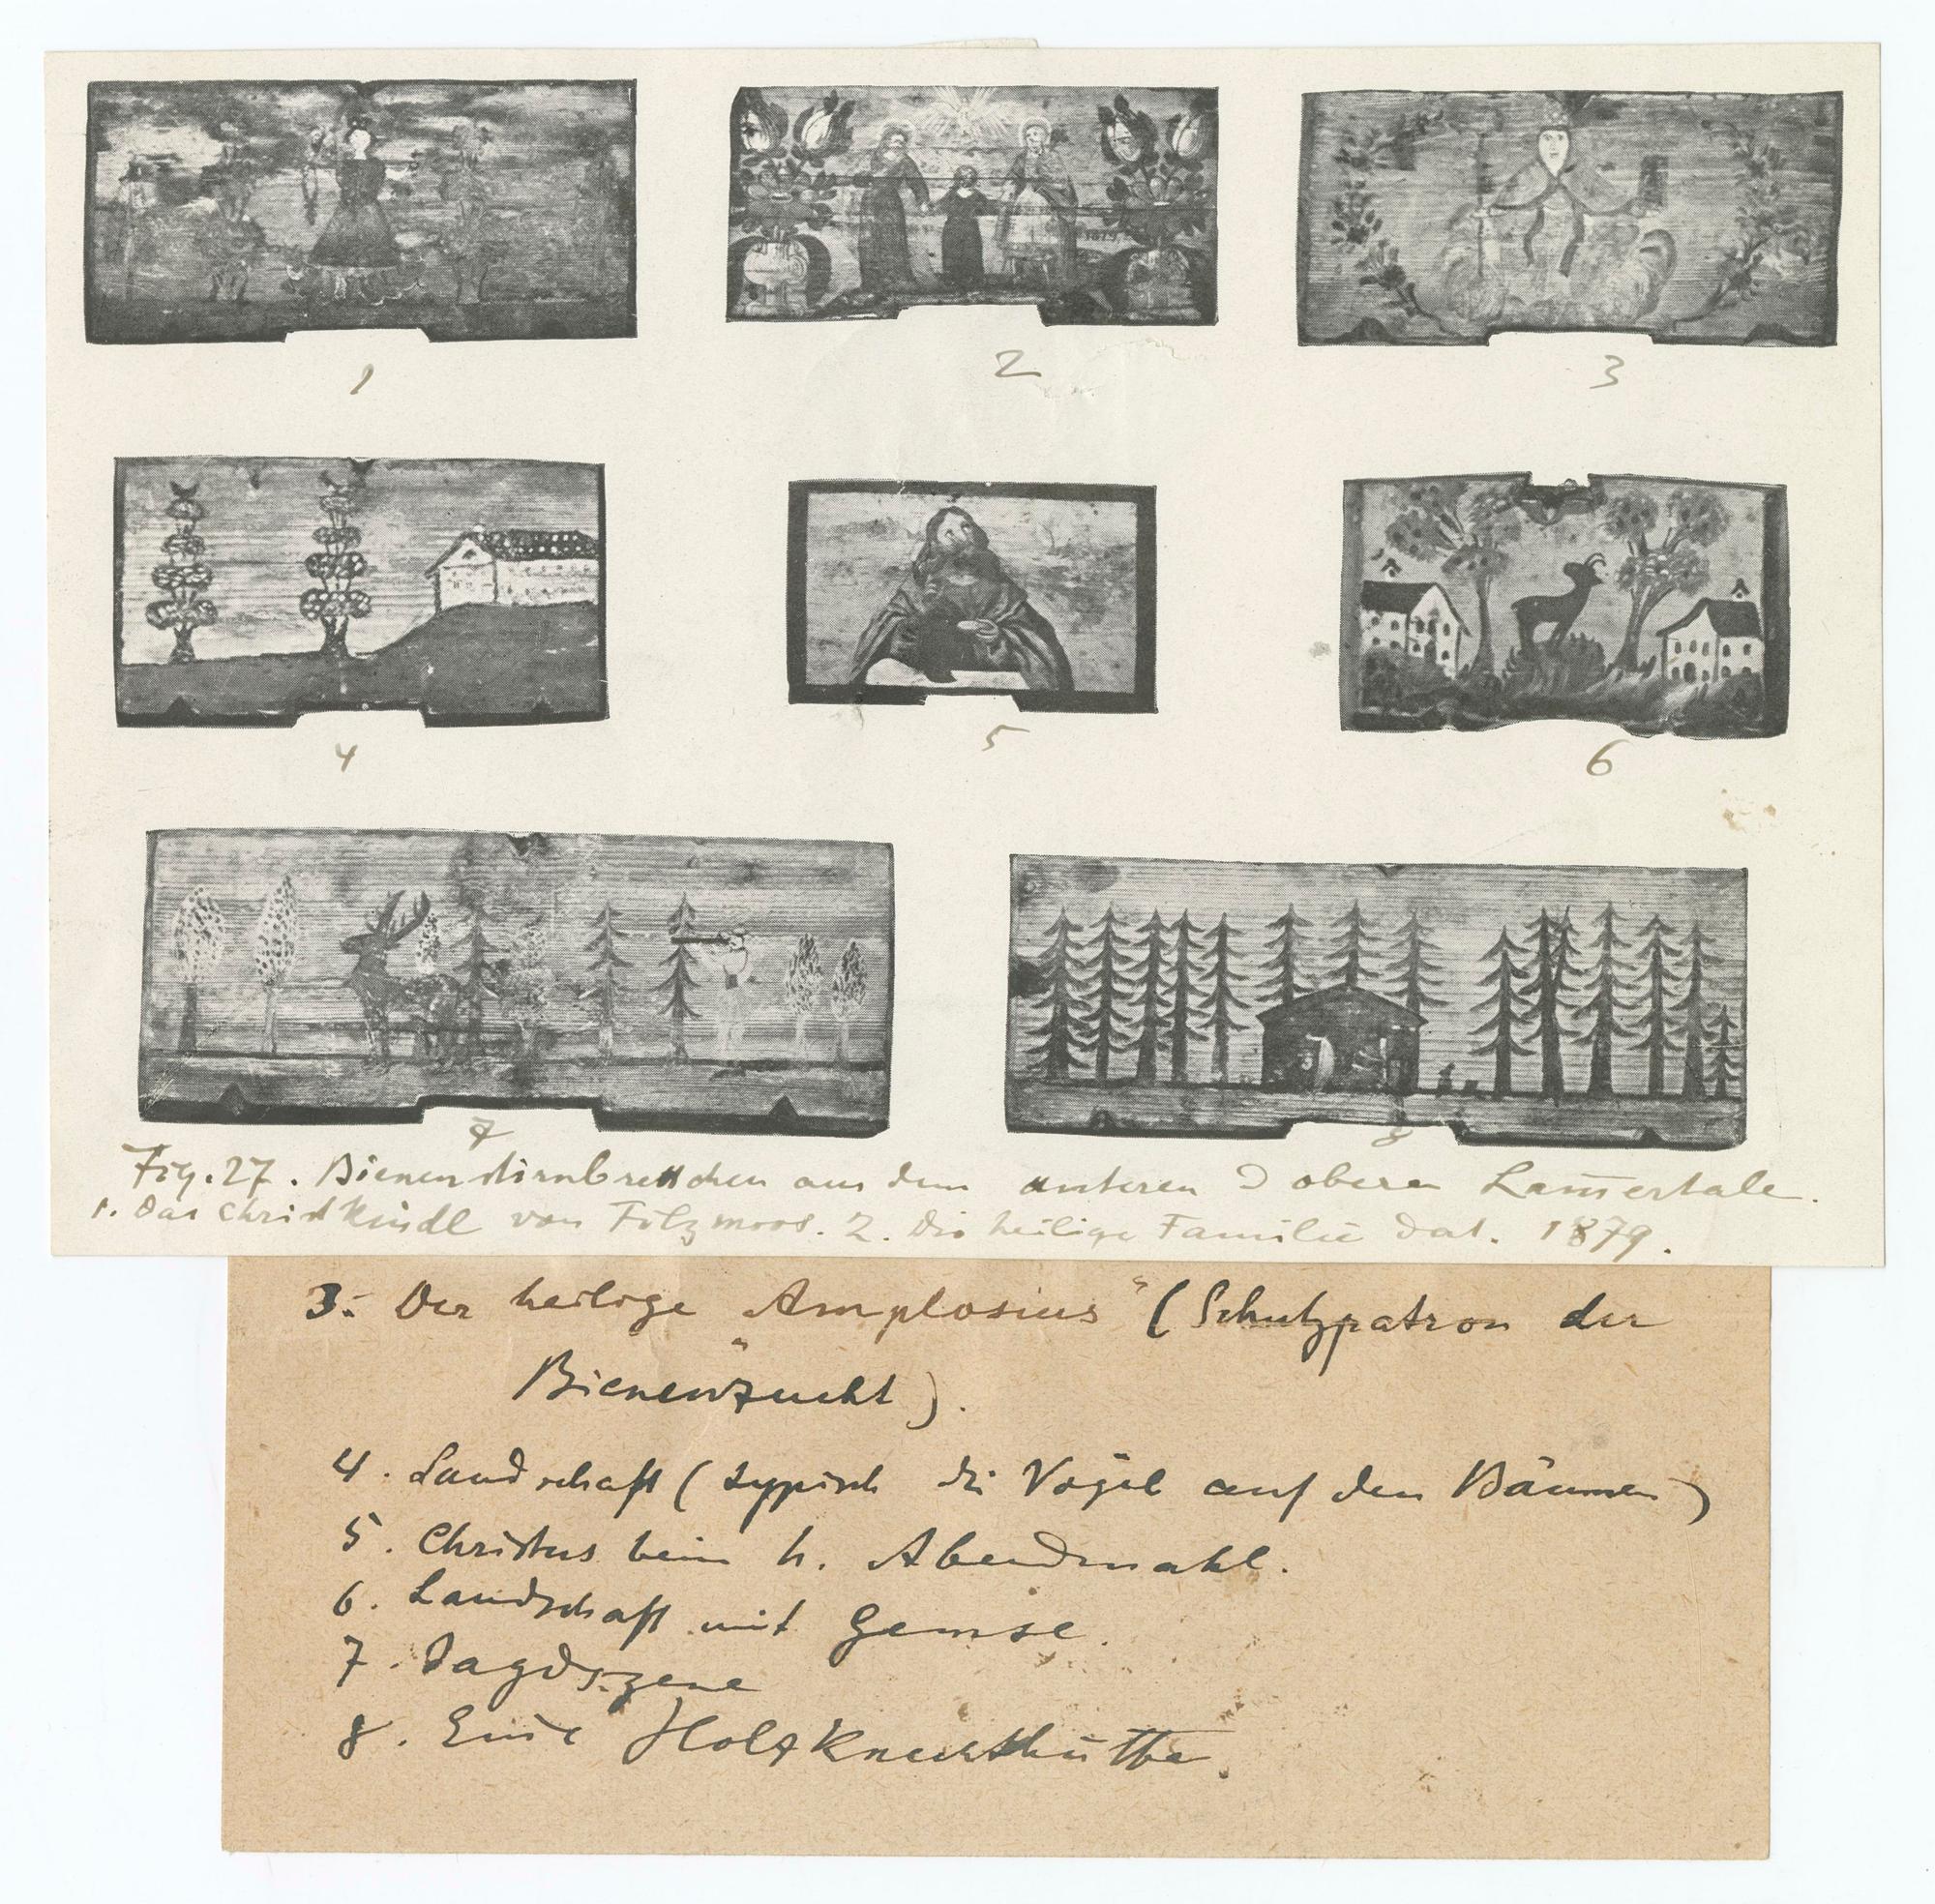 1879
1
2
3
4
5
6
7
8
Fig. 27. Bienenstirnbrettchen aus dem unteren & oberen Lam̅ertale.
1. Das Christkindl von Filzmoos. 2. Die heilige Familie dat. 1879.
3. Der heilige „Amplosius“ (Schutzpatron der
Bienenzucht).
4. Landschaft (typisch die Vögel auf den Bäumen)
5. Christus beim h. Abendmahl.
6. Landschaft mit Gemse.
7. Jagdszene
8. Eine Holzknechthütte.